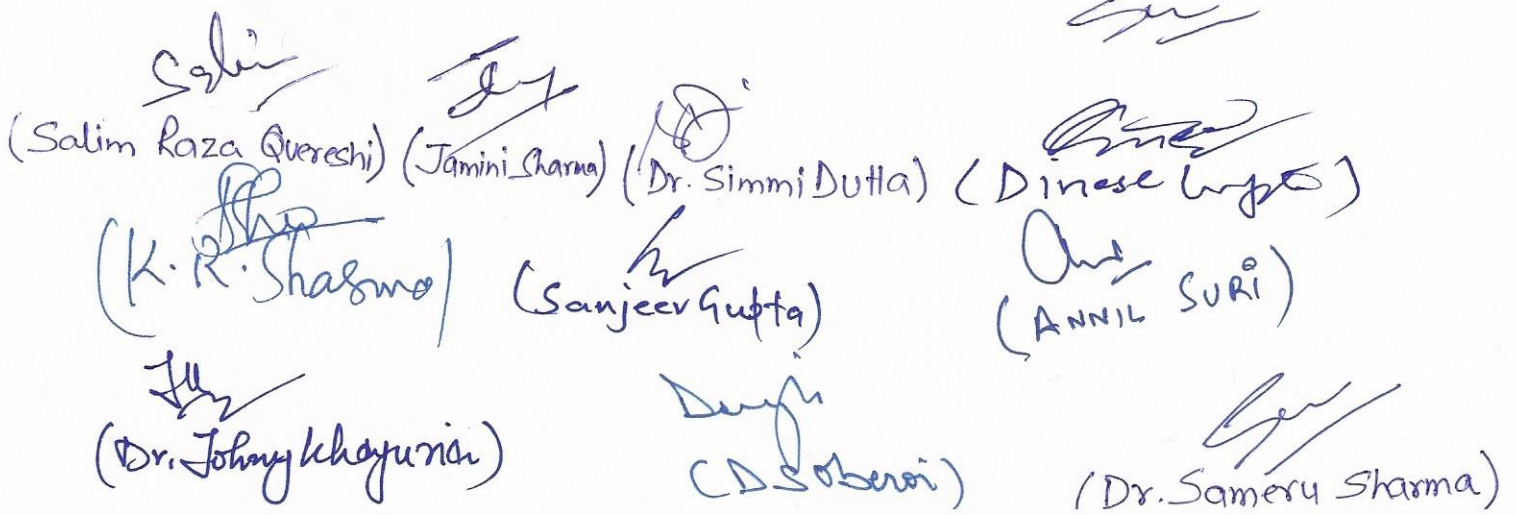 Salim
(Salim Raza Quereshi) (Jamini Sharma) (Dr. Simmi Dutta) (Dinese Gupta)
(K. R. Sharma) (Sanjeev Gupta) (ANNIL SURi)
(Dr. Johny Khajuria) (D S Oberoi) (Dr. Sameru Sharma)